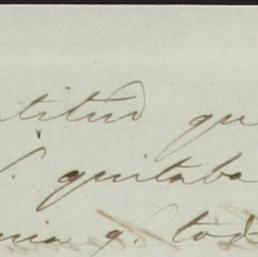 titud qu
. quitaba
nia q. tod